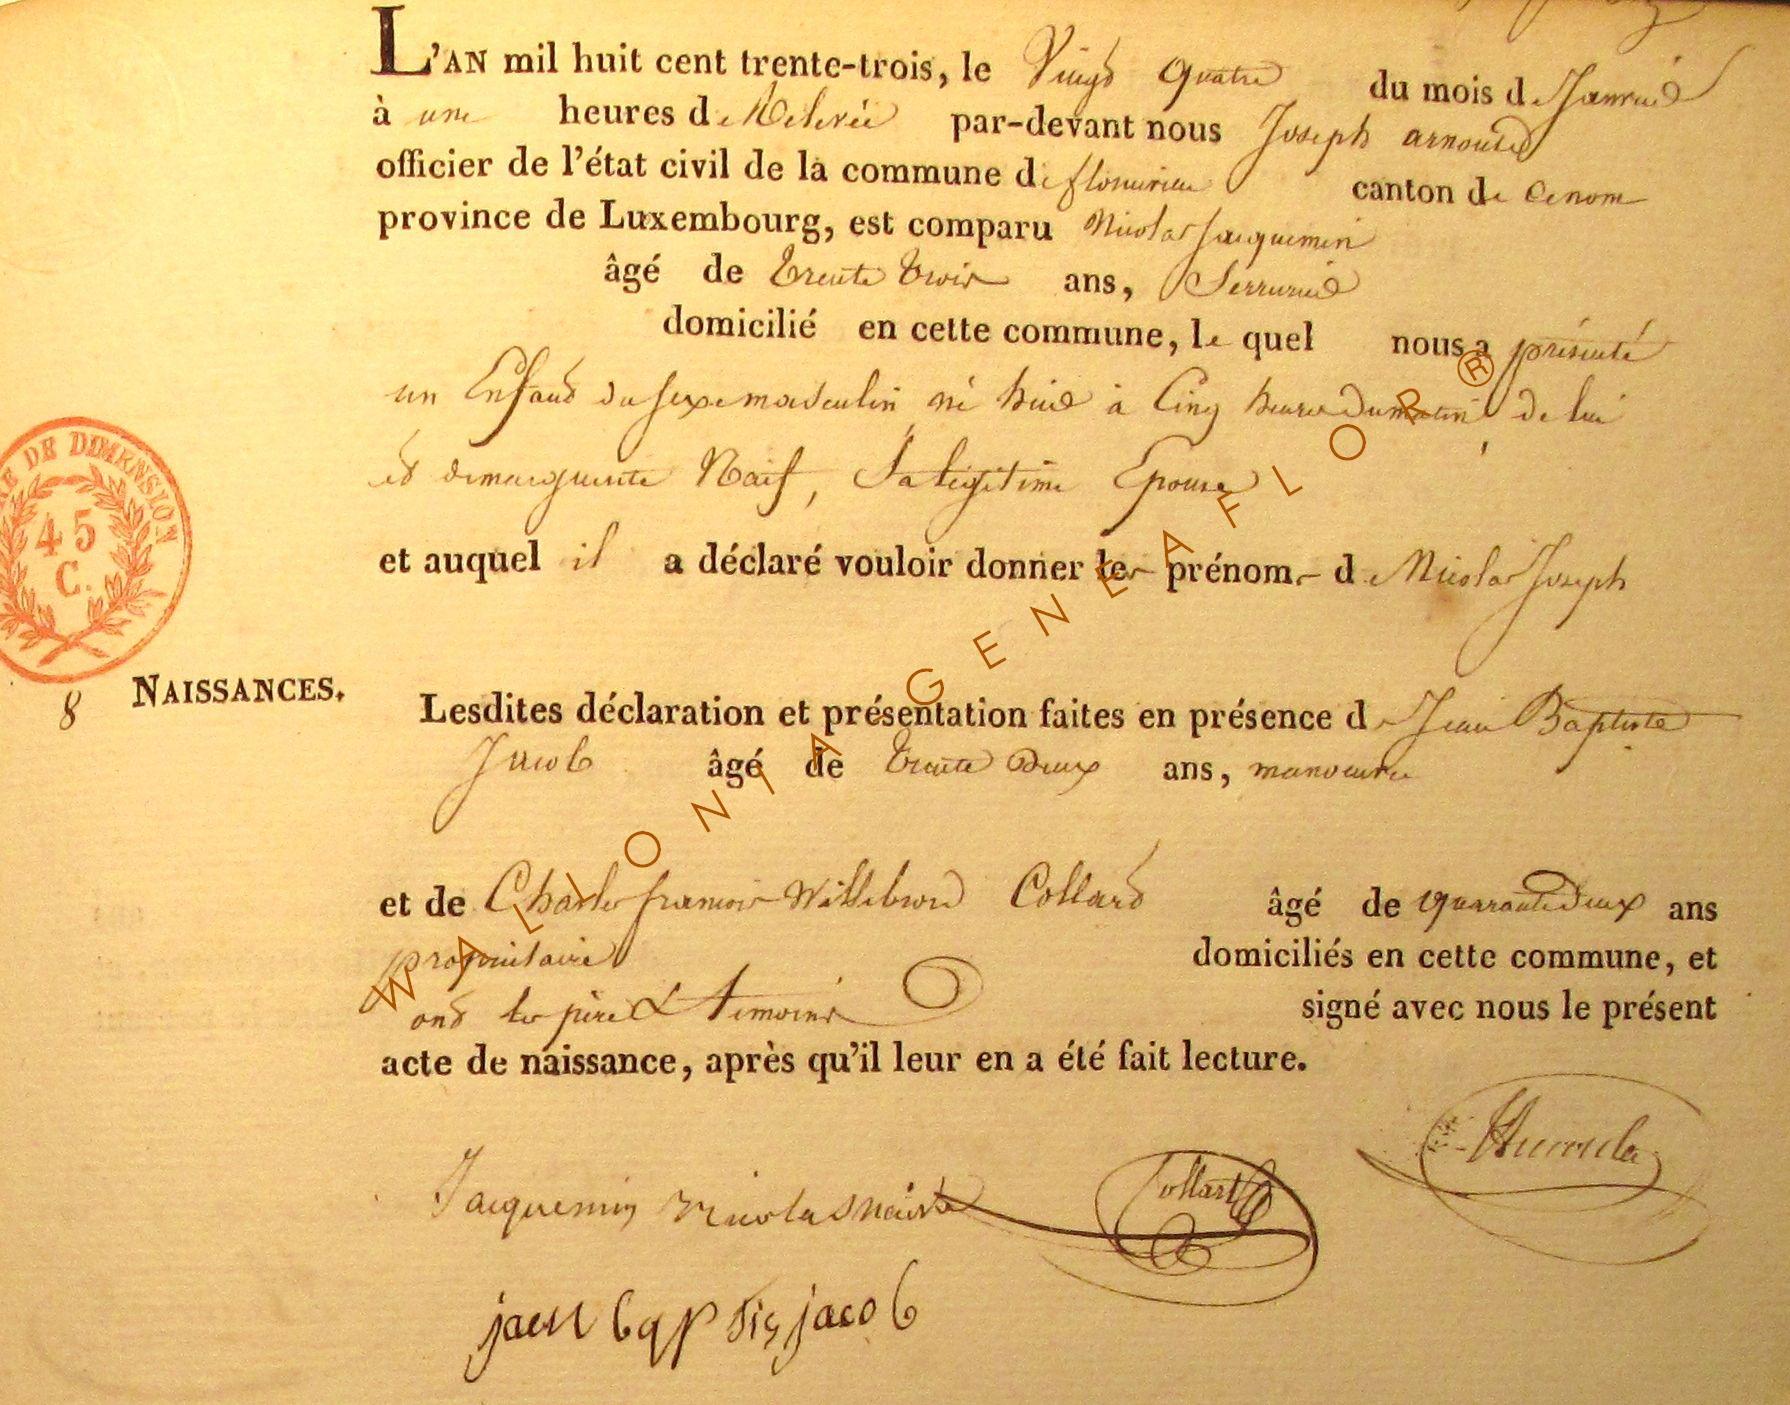 L'AN mil huit cent trente-trois, le Vingt quatre du mois de Janvier
à une heures de Relevée par-devant nous Joseph arnould
officier de l'état civil de la commune de canton de
province de Luxembourg, est comparu Nicolas Jacquemin
âgé de trente trois ans, Serrurier
domicilié en cette commune, le quel nous a présenté
un Enfant du sexe masculin, né hier à Cinq heures du matin de lui
et de marguerite Naif, Sa légitime Epouse
et auquel il a déclaré vouloir donner les prénoms de Nicolas Joseph
8 NAISSANCES.
Lesdites déclaration et présentation faites en présence de Jean Baptiste
Jacob âgé de trente deux ans, manoeuvre
et de Charles francois Willebrord Collard âgé de quarante deux ans
propriétaire domiciliés en cette commune, et
ont les père & témoins signé avec nous le présent
acte de naissance, après qu'il leur en a été fait lecture.
Jacquemin nicolas Collart
jacob
DE DIMENSION
45
C.
WALLONIA GENEA FLOR ®